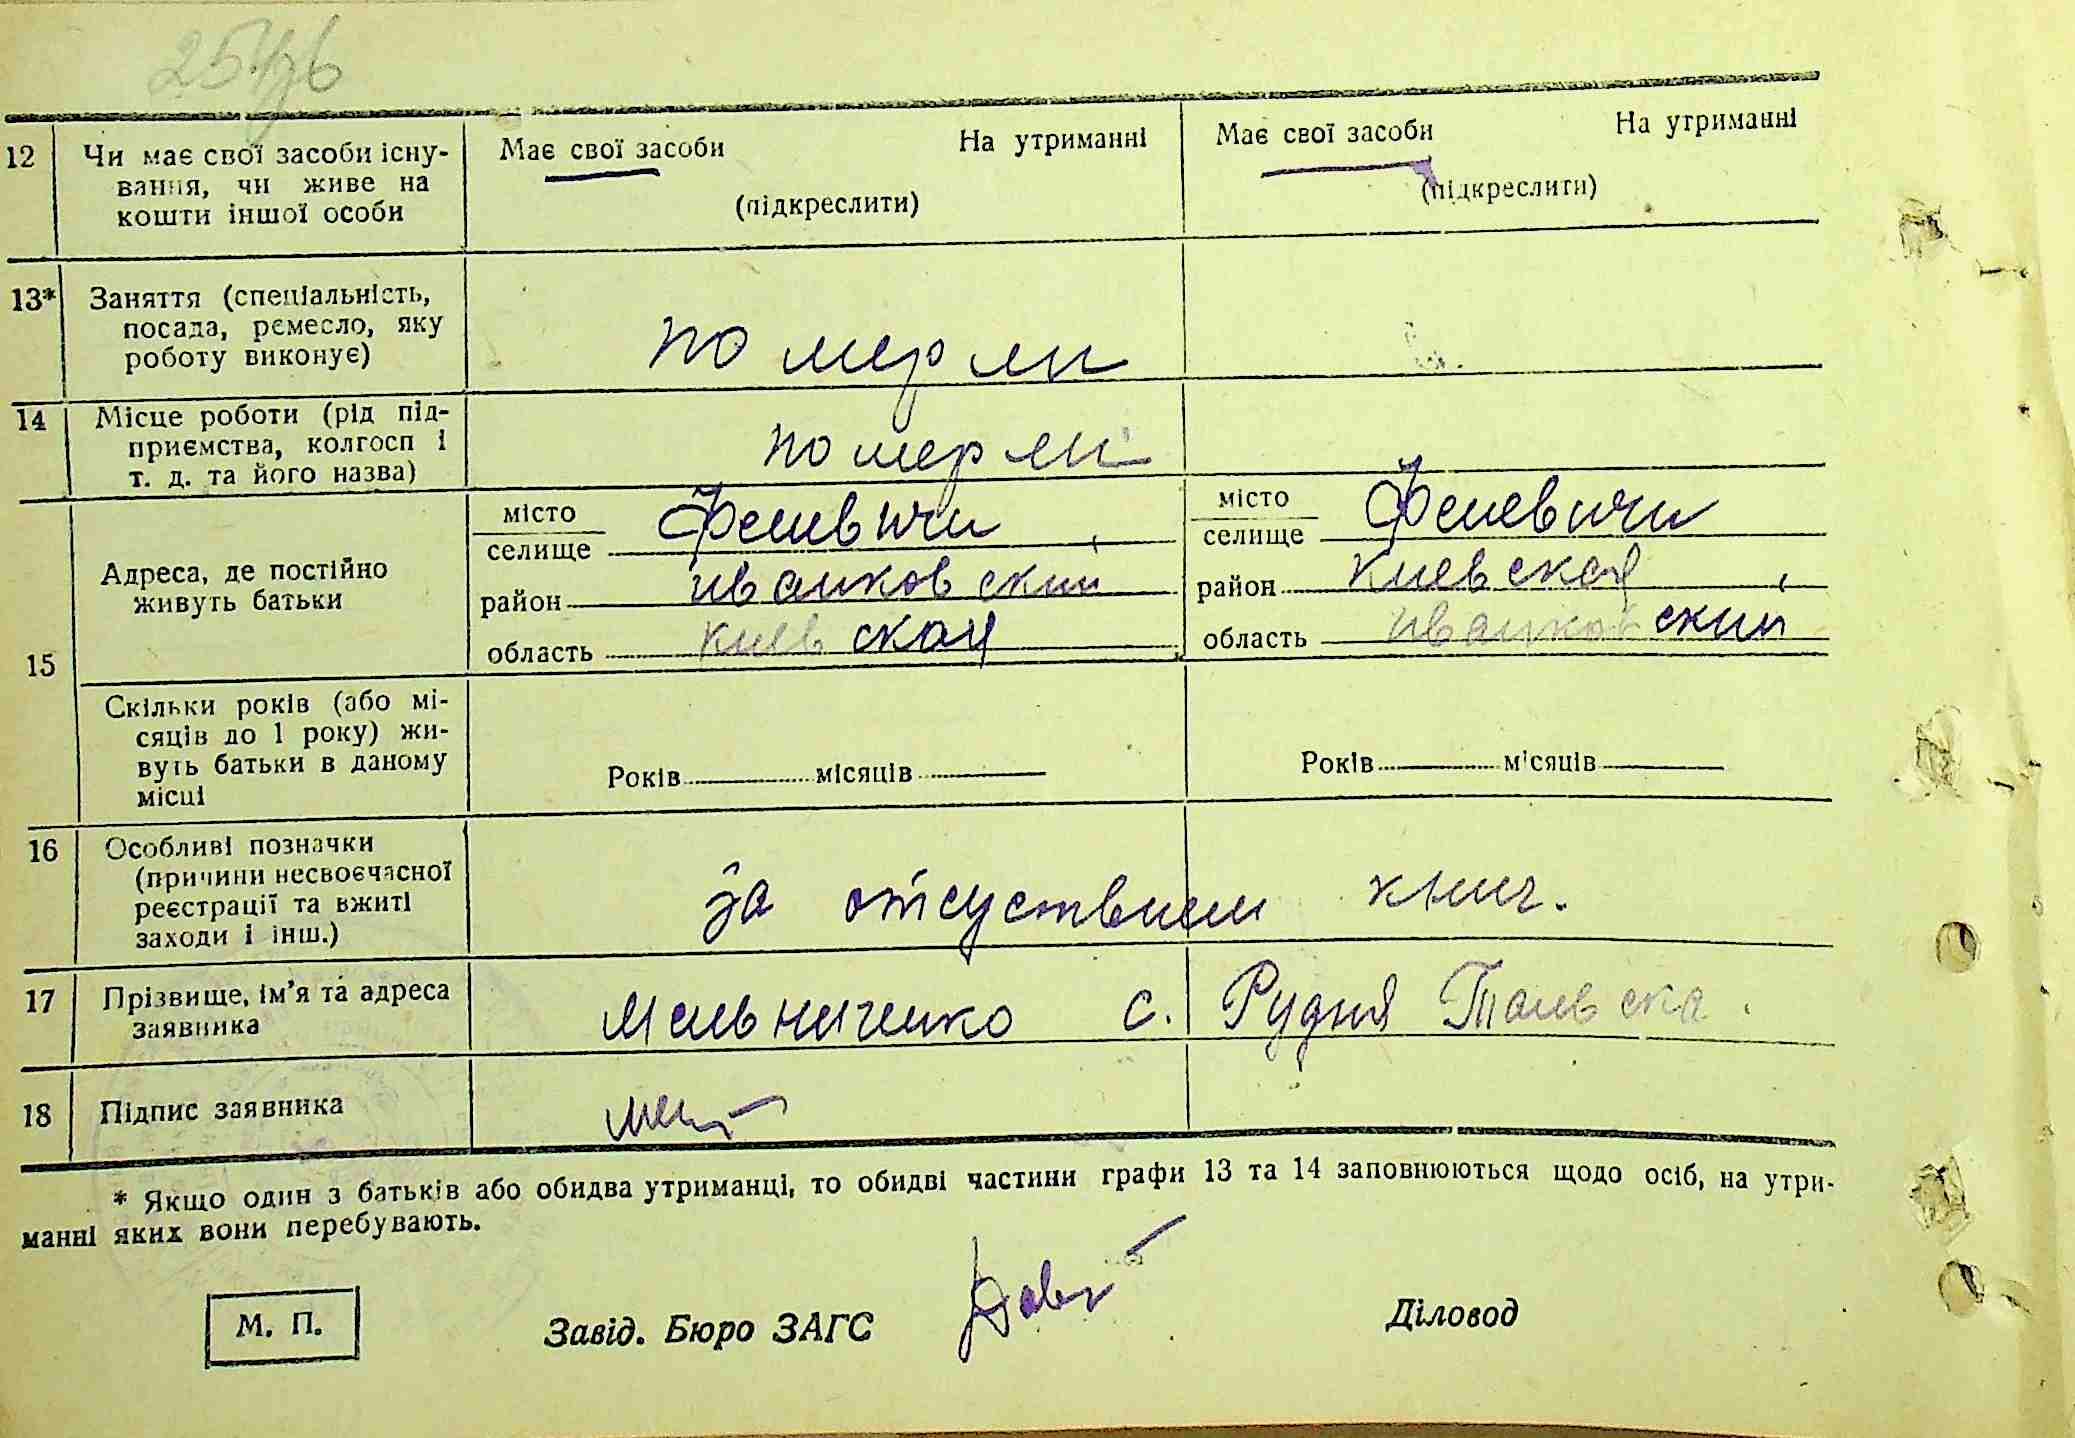 12 Чи має свої засоби існу-
вання, чи живе на
кошти іншої особи
Має свої засоби На утриманні
(підкреслити)
Має свої засоби На утриманні
(підкреслити)
13* Заняття (спеціальність,
посада, ремесло, яку
роботу виконує)
померли
14 Місце роботи (рід під-
приємства, колгосп і
т. д. та його назва)
померли
15 Адреса, де постійно
живуть батьки
місто
селище Феневичи
район иванковский
область киевская
місто
селище Феневичи
район Киевская
область иванковский
Скільки років (або мі-
сяців до 1 року) жи-
вуть батьки в даному
місці
Років місяців
Років місяців
16 Особливі позначки
(причини несвоєчасної
реєстрації та вжиті
заходи і інш.)
за отсуствием книг.
17 Прізвище, ім'я та адреса
заявника
Мельниченко с. Рудня Тальска.
18 Підпис заявника
* Якщо один з батьків або обидва утриманці, то обидві частини графи 13 та 14 заповнюються щодо осіб, на утри-
манні яких вони перебувають.
М. П.
Завід. Бюро ЗАГС
Діловод